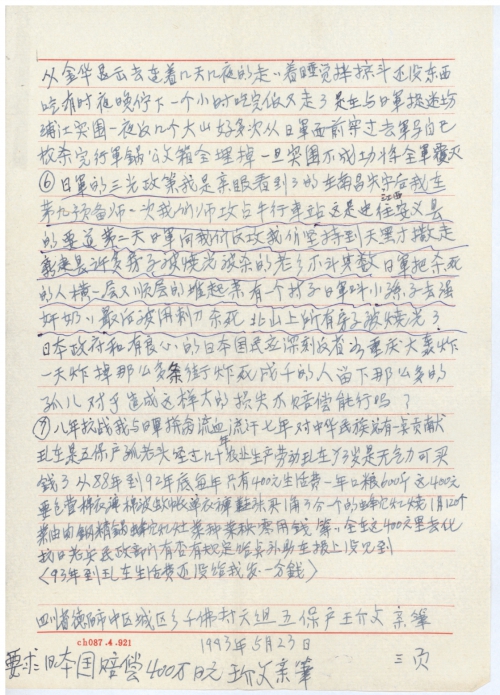 从金华县云去连着几天几夜的走,着睡觉摔掼斗还没东西
吃有时夜晚停下一个小时吃完饭又走了是在与日軍捉迷坊
浦江突围一夜反几个大山好多次从日軍面前窜过去軍马自己
枚杀完行軍鍋公文箱全埋掉一旦突围不成功将全軍覆灭
⑥日軍的三光政策我是亲眼看到了的在南昌失守后我在
第九预备师一次我们师攻占牛行車站这是

往江西安义县
的要道第二天日軍向我们反攻我们坚持到天黑才撤走
新建县许多房子被烧光被杀的老乡不计其数日軍把杀死
的人横一层又顺层的堆起来有一个村子日軍叫小孫子去强
奸奶,最后被用刺刀杀死北山上所有房子被烧光了
日本政府和有良心的日本国民应深刻反省当重庆大轰炸
一天炸掉那么多条街炸死成千的人留下那么多的
孤儿对于造成这样大的损失不赔偿能行吗?
⑦八年抗战我与日軍拚命流血流汗七年对中华民族总有一点贡献
现在是五保户孤老头经过几十年农业生产劳动现在73岁是无力可买
錢了从88年到92年底每年只有400元生活费一年口粮600斤这400元
要包营棉衣薄棉被蚊帐单衣裤鞋头买1角3分一个的蜂窝煤烧1月120个
柴油肉鍋精鍋蜂窝煤灶菜种菜秧零用錢等,全在这400元里去化
抗日老兵民政部门有否有规定给点补助在报上没见到
(93年到现在生活费还没给我发一分錢)
四川省德阳市中区城区乡千佛村六组五保户王竹文亲筆
1993年5月23日
ch087.4.921
要求日本国赔偿400万日元 王竹文亲筆
三页